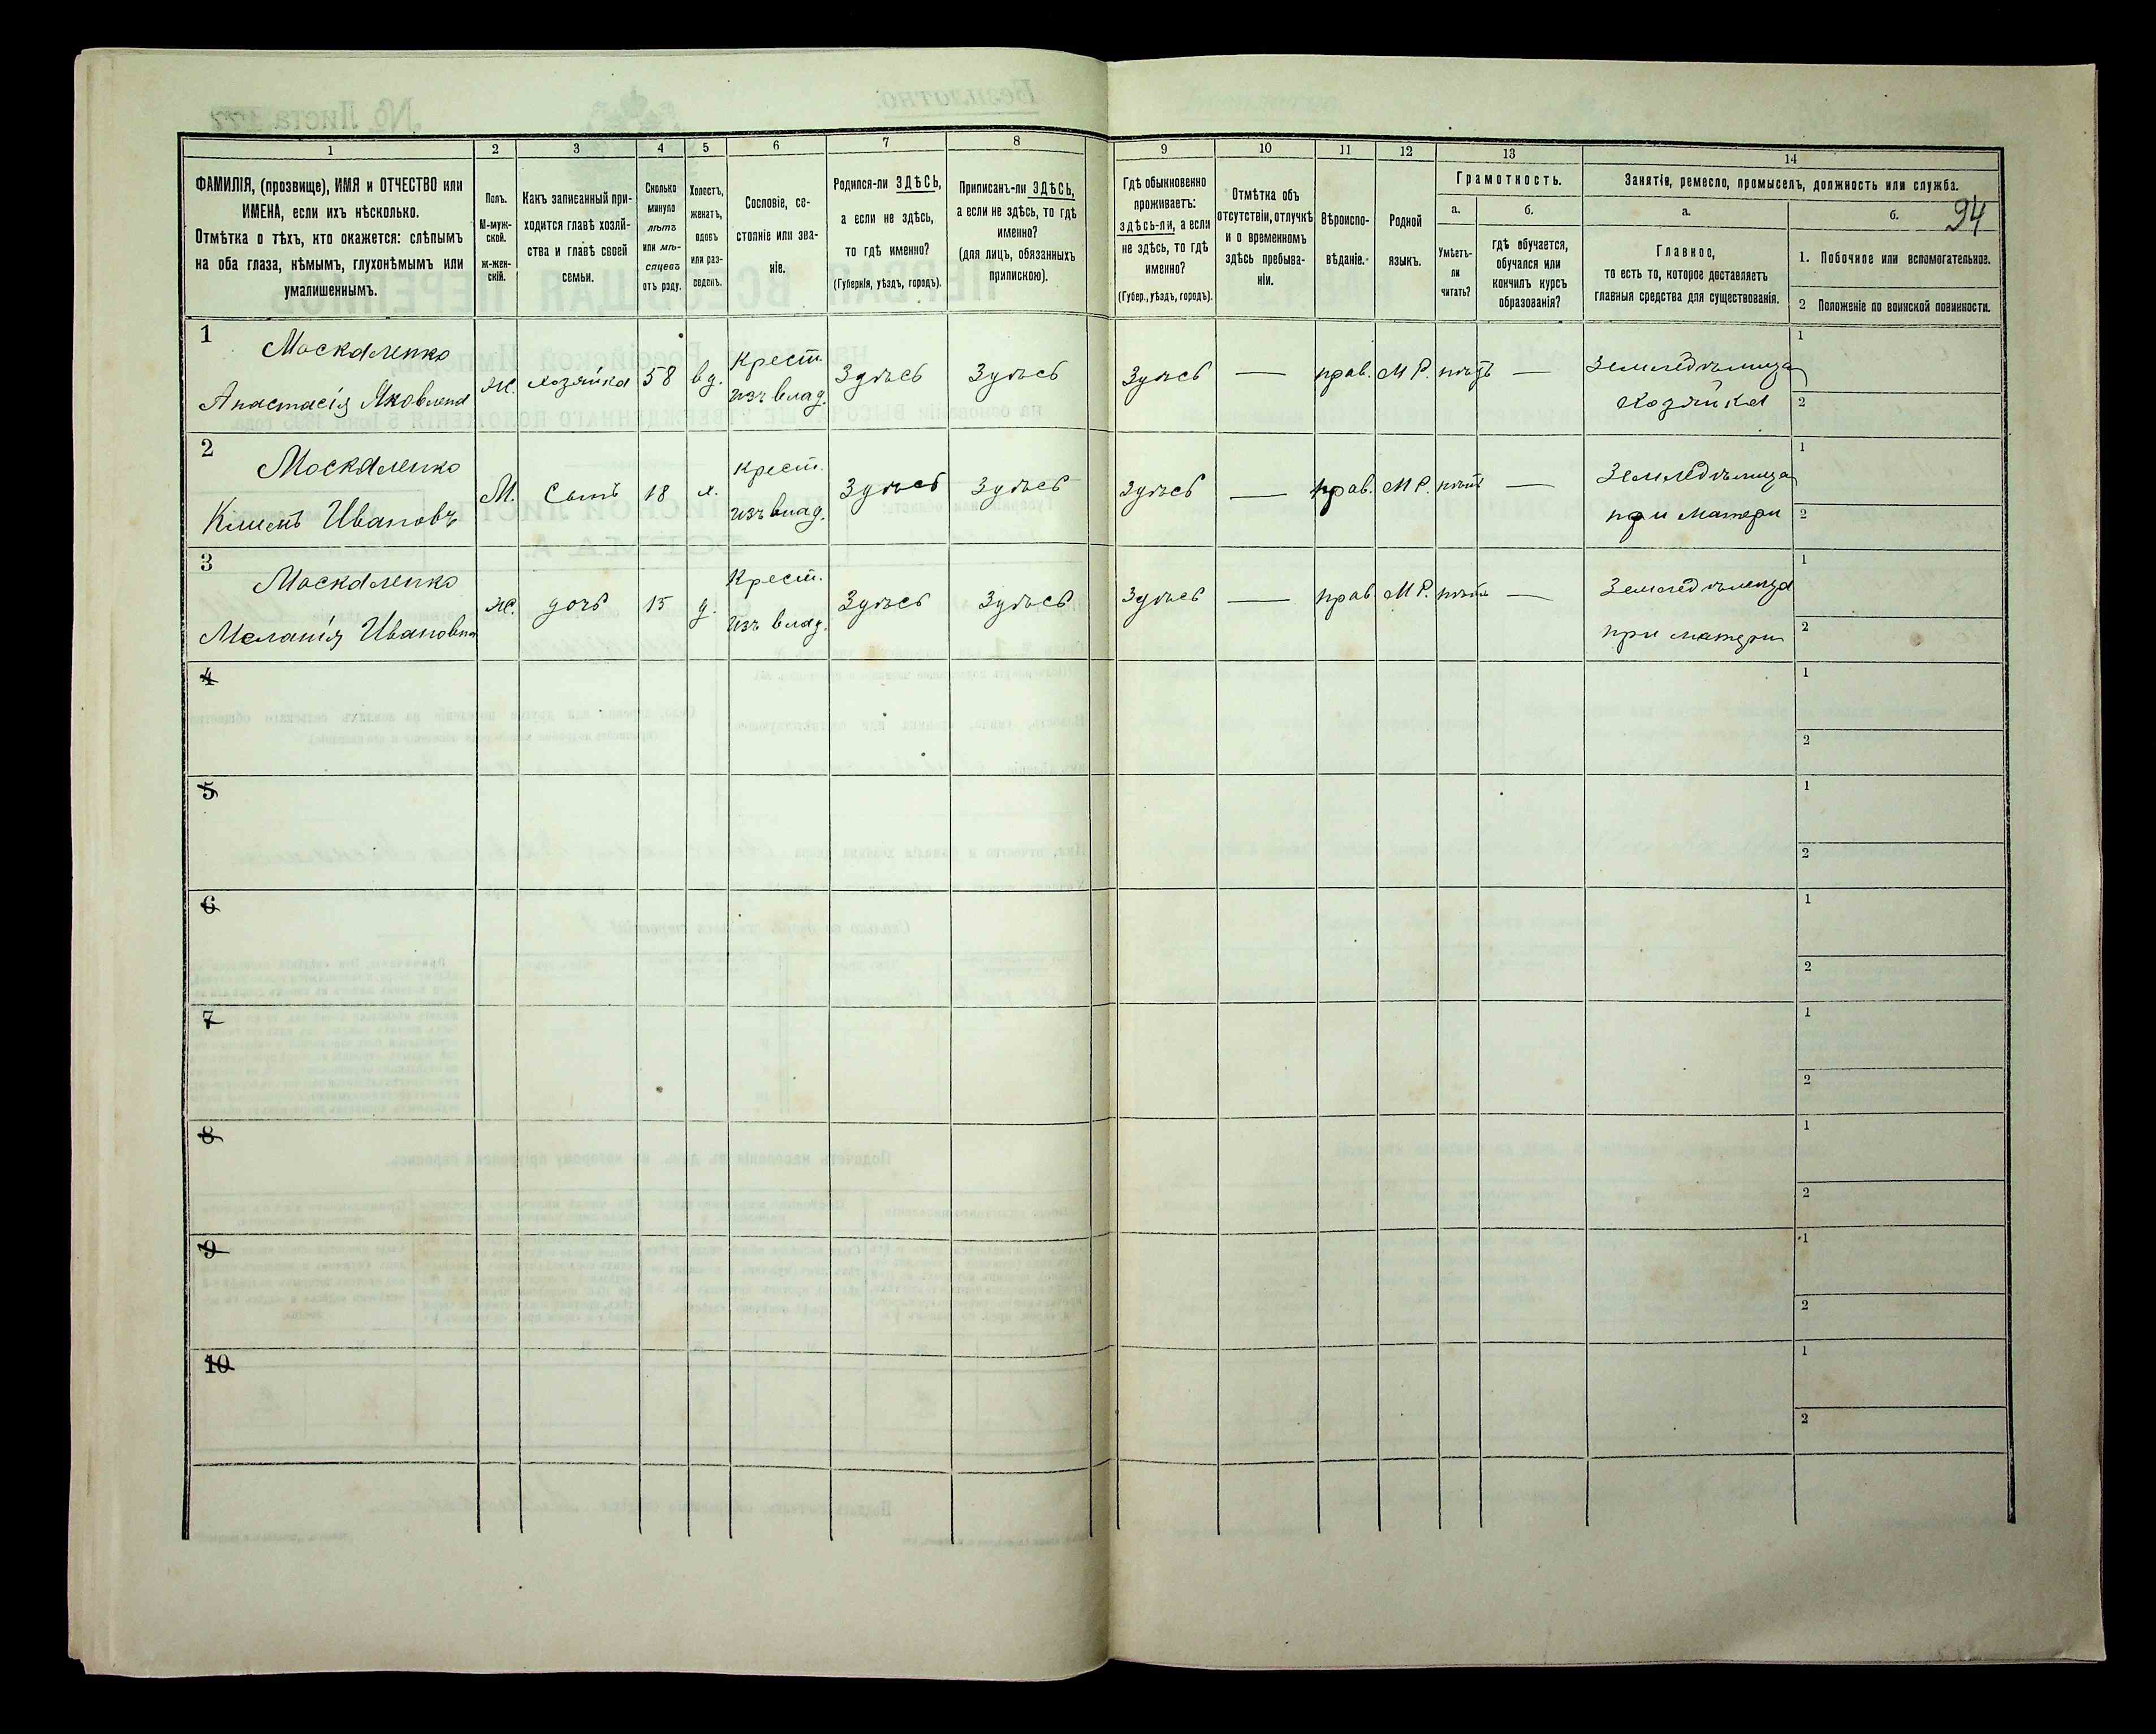 1 2 3 4 5 6 7 8 9 10 11 12 13 14
ФАМИЛІЯ, (прозвище), ИМЯ и ОТЧЕСТВО или
ИМЕНА, если ихъ нѣсколько.
Отмѣтка о тѣхъ, кто окажется: слѣпымъ
на оба глаза, нѣмымъ, глухонѣмымъ или
умалишеннымъ.
Полъ.
М-муж-
ской.
ж-жен-
скій.
Какъ записанный при-
ходится главѣ хозяй-
ства и главѣ своей
семьи.
Сколько
минуло
лѣтъ
или мѣ-
сяцевъ
отъ роду.
Холостъ,
женатъ,
вдовъ
или раз-
веденъ.
Сословіе, со-
стояніе или зва-
ніе.
Родился-ли ЗДѢСЬ,
а если не здѣсь,
то гдѣ именно?
(Губернія, уѣздъ, городъ).
Приписанъ-ли ЗДѢСЬ,
а если не здѣсь, то гдѣ
именно?
(для лицъ, обязанныхъ
припискою).
Гдѣ обыкновенно
проживаетъ:
здѣсь-ли, а если
не здѣсь, то гдѣ
именно?
(Губер., уѣздъ, городъ).
Отмѣтка объ
отсутствіи, отлучкѣ
и о временномъ
здѣсь пребыва-
ніи.
Вѣроиспо-
вѣданіе.
Родной
языкъ.
Грамотность.
а.
Умѣетъ-
ли
читать?
б.
гдѣ обучается,
обучался или
кончилъ курсъ
образованія?
Занятіе, ремесло, промыселъ, должность или служба.
а.
Главное,
то есть то, которое доставляетъ
главныя средства для существованія.
б.
94
1. Побочное или вспомогательное.
2 Положеніе по воинской повинности.
1 Москаленко
Анастасія Яковлена
ж. хозяйка 58 вд.
Крест.
изъ влад.
Здѣсь Здѣсь Здѣсь — прав. М Р. нѣтъ —
Земледѣлица
Хозяйка
1
2
2 Москаленко
Климъ Ивановъ
М. Сынъ 18 х.
Крест.
изъ влад.
Здѣсь Здѣсь Здѣсь — прав. М Р. нѣтъ —
Земледѣлица
при матери
1
2
3 Москаленко
Меланія Ивановна
ж. дочь 15 д.
Крест.
изъ влад.
Здѣсь Здѣсь Здѣсь — прав М Р. нѣтъ —
Земледѣлица
при матери
1
2
4
1
2
5
1
2
6
1
2
7
1
2
8
1
2
9
1
2
10
1
2